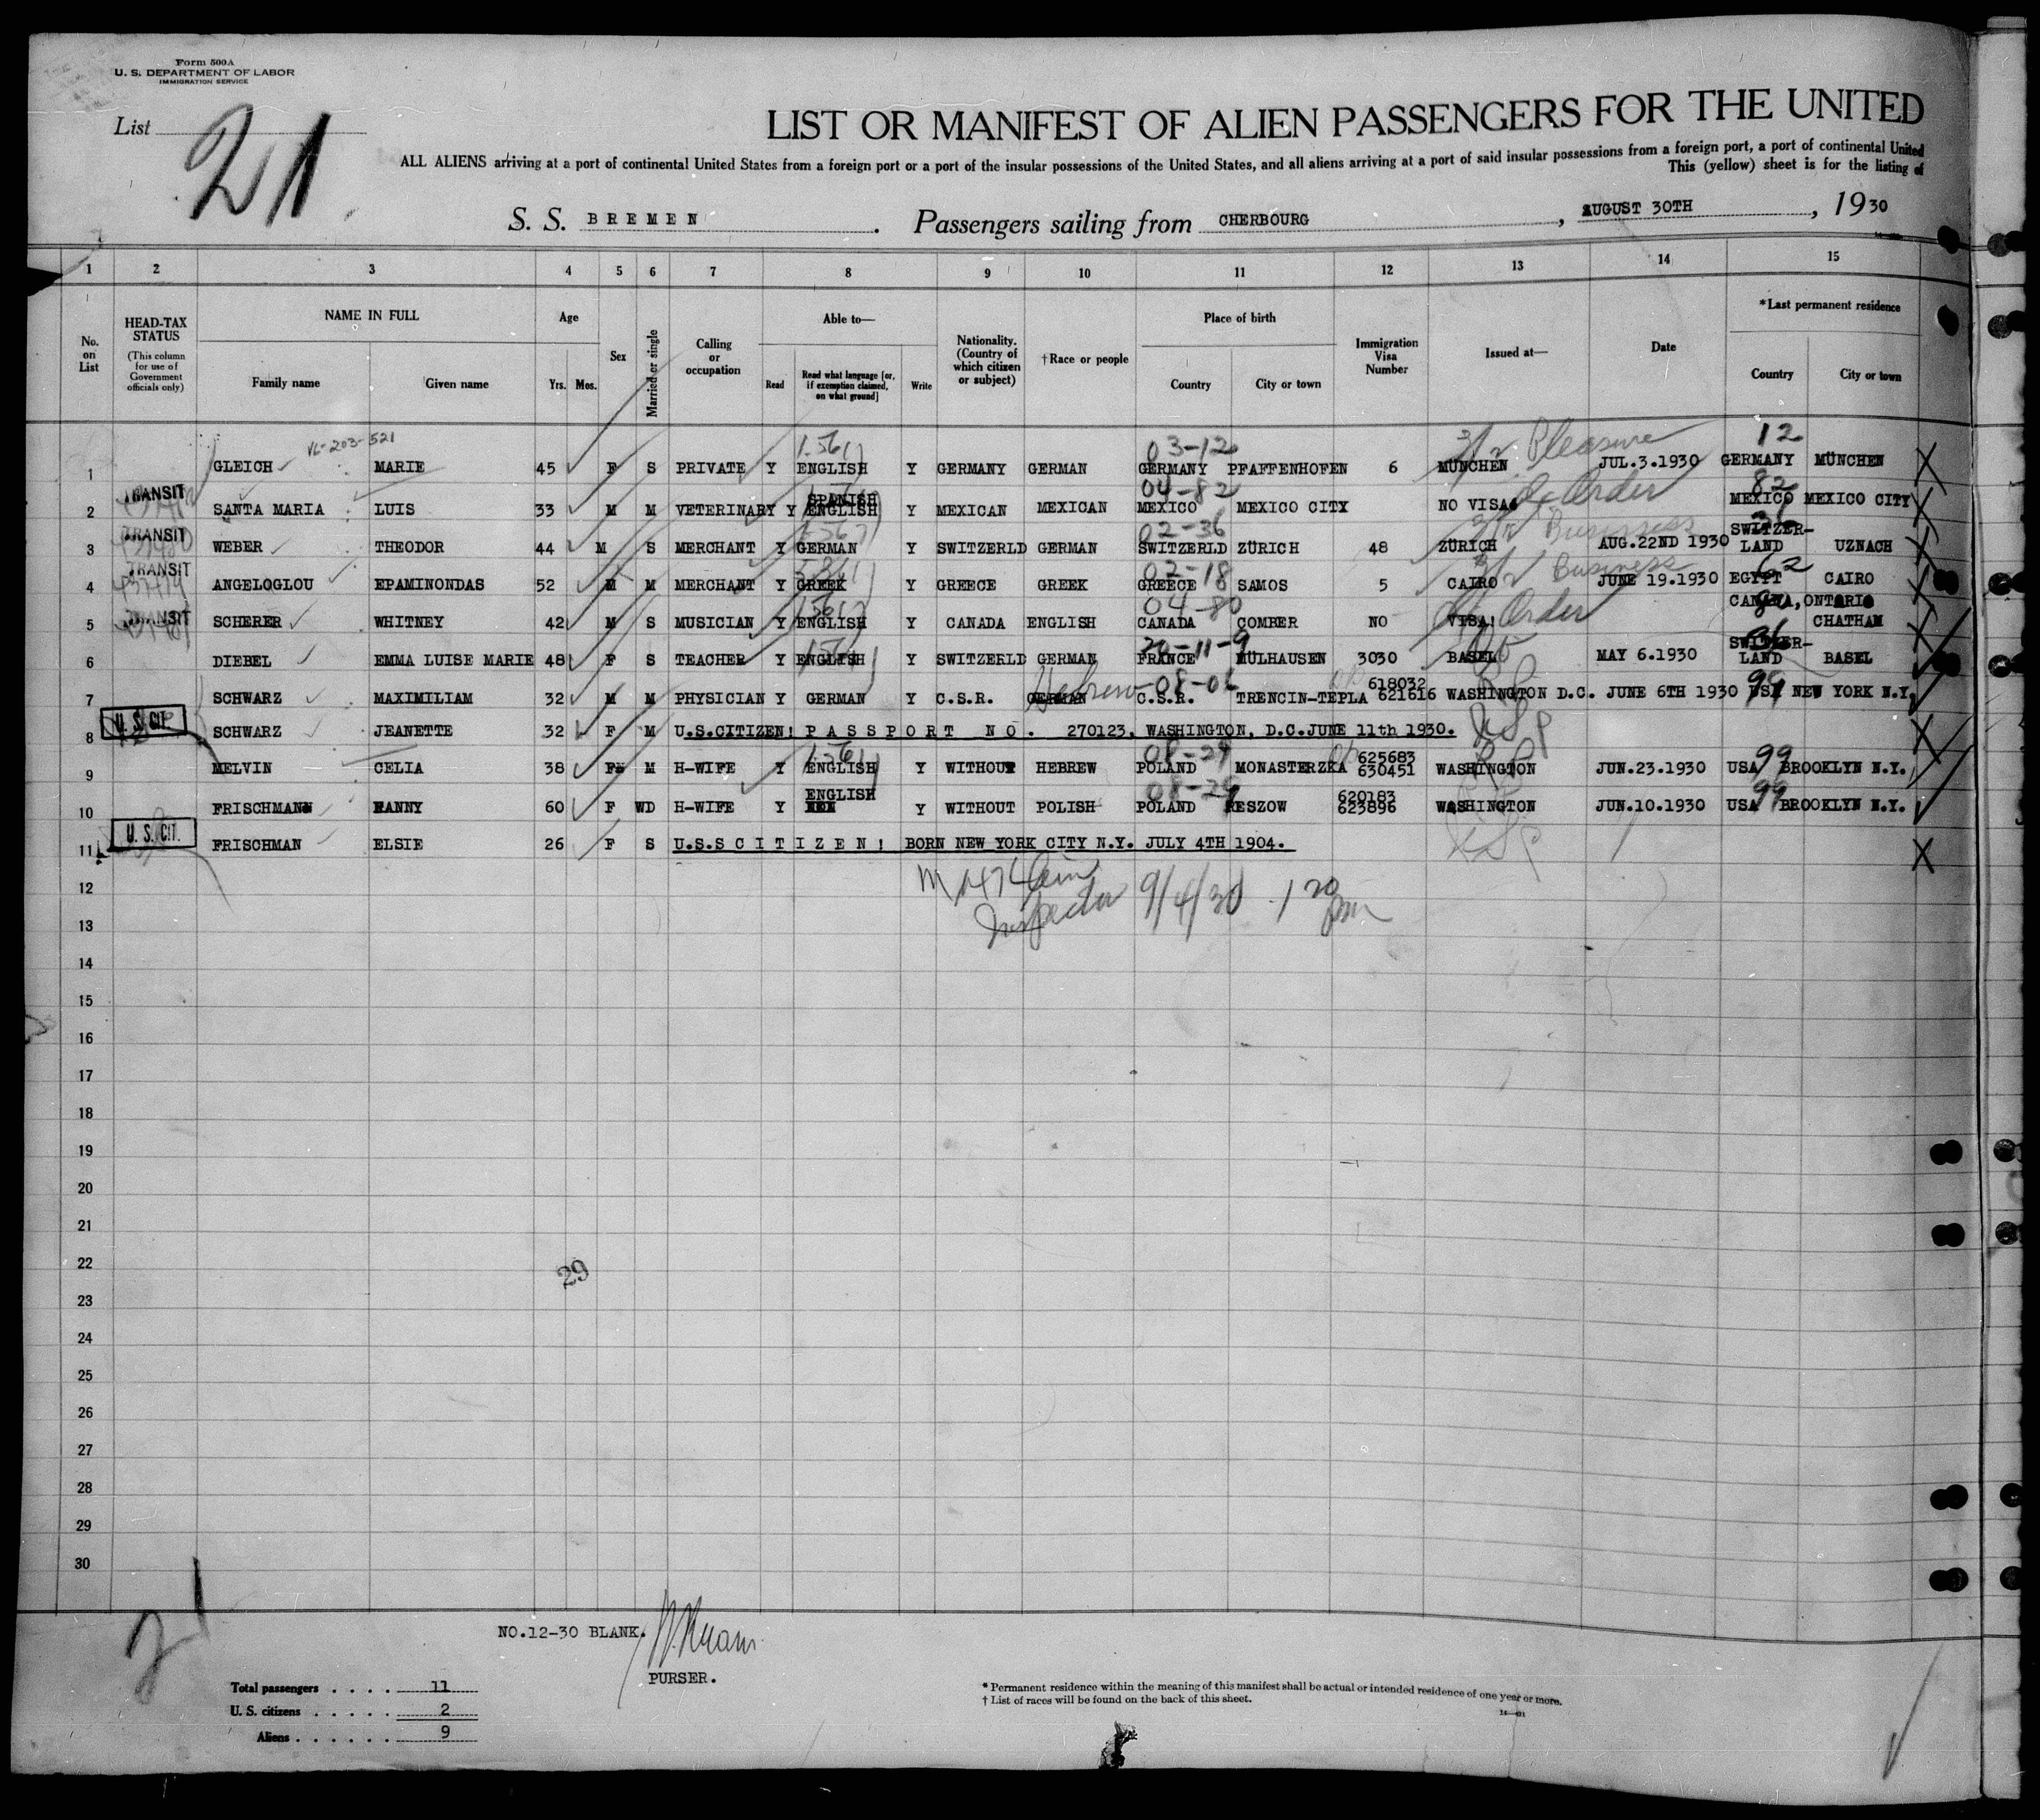 Form 500A
U. S. DEPARTMENT OF LABOR
IMMIGRATION SERVICE
List 21
LIST OR MANIFEST OF ALIEN PASSENGERS FOR THE UNITED
ALL ALIENS arriving at a port of continental United States from a foreign port or a port of the insular possessions of the United States, and all aliens arriving at a port of said insular possessions from a foreign port, a port of continental United
This (yellow) sheet is for the listing of
S. S. BREMEN. Passengers sailing from CHERBOURG, AUGUST 30TH, 1930
1 2 3 4 5 6 7 8 9 10 11 12 13 14 15
No. on List
HEAD-TAX STATUS
(This column for use of Government officials only)
NAME IN FULL
Family name
Given name
Age
Yrs. Mos.
Sex
Married or single
Calling or occupation
Able to—
Read
Read what language [or, if exemption claimed, on what ground]
Write
Nationality. (Country of which citizen or subject)
†Race or people
Place of birth
Country
City or town
Immigration Visa Number
Issued at—
Date
*Last permanent residence
Country
City or town
VL-203-521 03-12 Pleasure 12
1 GLEICH MARIE 45 F S PRIVATE Y ENGLISH Y GERMANY GERMAN GERMANY PFAFFENHOFEN 6 MÜNCHEN JUL.3.1930 GERMANY MÜNCHEN
TRANSIT SPANISH 04-82 Order 82
2 SANTA MARIA LUIS 33 M M VETERINARY Y ENGLISH Y MEXICAN MEXICAN MEXICO MEXICO CITY NO VISA MEXICO MEXICO CITY
TRANSIT 02-36 Business
3 WEBER THEODOR 44 M S MERCHANT Y GERMAN Y SWITZERLD GERMAN SWITZERLD ZÜRICH 48 ZÜRICH AUG.22ND 1930 SWITZER-LAND UZNACH
TRANSIT 02-18 Business 62
4 ANGELOGLOU EPAMINONDAS 52 M M MERCHANT Y GREEK Y GREECE GREEK GREECE SAMOS 5 CAIRO JUNE 19.1930 EGYPT CAIRO
TRANSIT 04-80 Order
5 SCHERER WHITNEY 42 M S MUSICIAN Y ENGLISH Y CANADA ENGLISH CANADA COMBER NO VISA! CANADA, ONTARIO CHATHAM
20-11-9
6 DIEBEL EMMA LUISE MARIE 48 F S TEACHER Y ENGLISH Y SWITZERLD GERMAN FRANCE MÜLHAUSEN 3030 BASEL MAY 6.1930 SWITZER-LAND BASEL
Hebrew 08-06 99
7 SCHWARZ MAXIMILIAM 32 M M PHYSICIAN Y GERMAN Y C.S.R. GERMAN C.S.R. TRENCIN-TEPLA 618032 621616 WASHINGTON D.C. JUNE 6TH 1930 USA NEW YORK N.Y.
U. S. CIT.
8 SCHWARZ JEANETTE 32 F M U.S.CITIZEN! PASSPORT NO. 270123, WASHINGTON, D.C.JUNE 11th 1930. USP
08-29 99
9 MELVIN CELIA 38 F M H-WIFE Y ENGLISH Y WITHOUT HEBREW POLAND MONASTERZKA 625683 630451 WASHINGTON JUN.23.1930 USA BROOKLYN N.Y.
08-29 99
10 FRISCHMANN FANNY 60 F WD H-WIFE Y ENGLISH Y WITHOUT POLISH POLAND RESZOW 620183 623896 WASHINGTON JUN.10.1930 USA BROOKLYN N.Y.
U. S. CIT.
11 FRISCHMAN ELSIE 26 F S U.S.S CITIZEN! BORN NEW YORK CITY N.Y. JULY 4TH 1904. USP
12
Inspector 9/4/30 1 20 pm
13
14
15
16
17
18
19
20
21
22
29
23
24
25
26
27
28
29
30
21
NO.12-30 BLANK.
PURSER.
Total passengers . . . . 11
U. S. citizens . . . . . 2
Aliens . . . . . . 9
* Permanent residence within the meaning of this manifest shall be actual or intended residence of one year or more.
† List of races will be found on the back of this sheet.